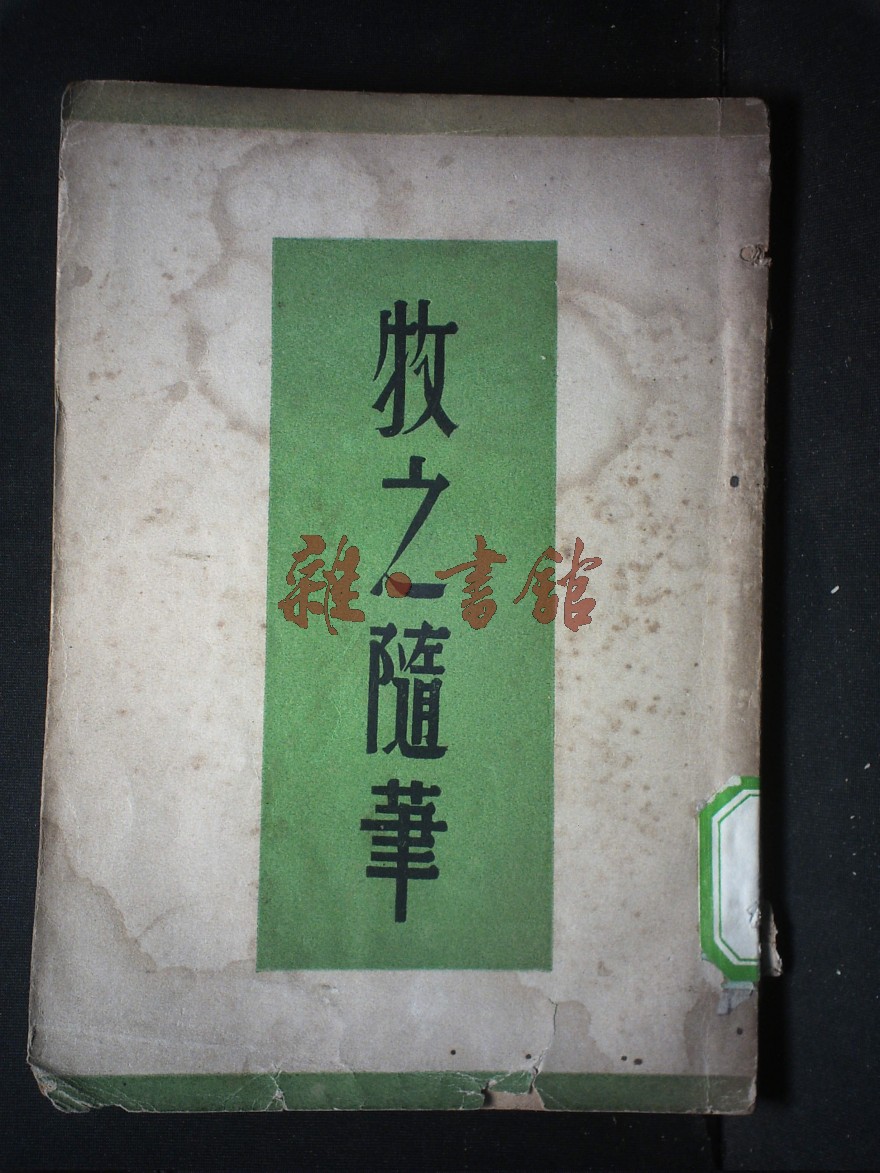 牧之隨筆
雜·書館